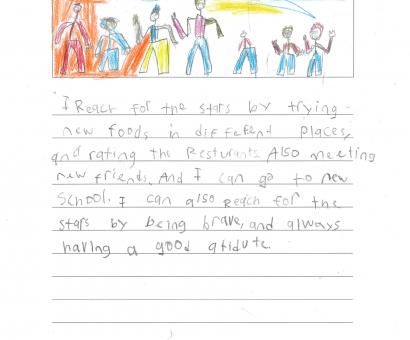 I Reach for the stars by trying
new foods in different places,
and rating the Resturants. Also meeting
new friends. And I can go to new
School. I can also Reach for the
stars by being brave, and always
having a good atidute.